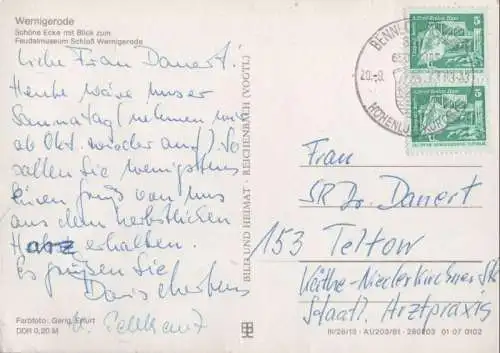 Wernigerode
Schöne Ecke mit Blick zum
Feudalmuseum Schloß Wernigerode
Liebe Frau Danert!
Heute wäre unser
Samstag (nehmen wir
ab Okt. wieder auf). So
sollen Sie wenigstens
einen Gruß von uns
aus dem herbstlichen
Harz erhalten.
Es grüßen Sie
Doris
BILD UND HEIMAT · REICHENBACH (VOGTL)
Farbfoto: Gerig, Erfurt
DDR 0,20 M
5
5
Frau
SR Dr. Danert
153 Teltow
Käthe-Niederkirchner Str.
Staatl. Arztpraxis
III/26/13 · A1/203/81 · 280203 01 07 0102